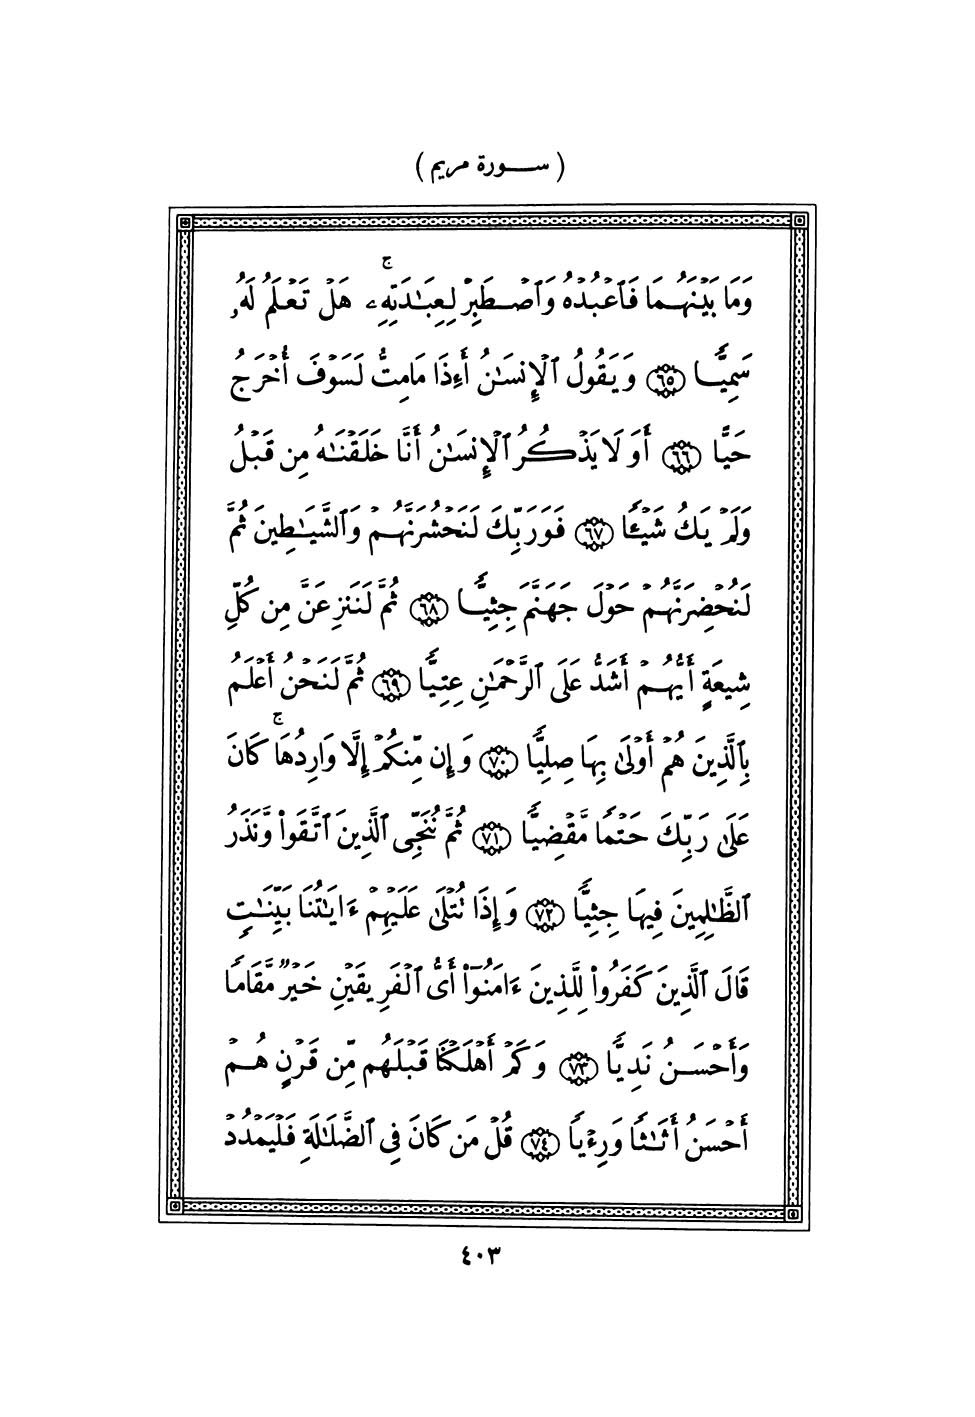 ( سورة مريم )
وَمَا بَيْنَهُمَا فَٱعْبُدْهُ وَٱصْطَبِرْ لِعِبَـٰدَتِهِۦۚ هَلْ تَعْلَمُ لَهُۥ
سَمِيًّا ٦٥ وَيَقُولُ ٱلْإِنسَـٰنُ أَءِذَا مَامِتُّ لَسَوْفَ أُخْرَجُ
حَيًّا ٦٦ أَوَلَا يَذْكُرُ ٱلْإِنسَـٰنُ أَنَّا خَلَقْنَـٰهُ مِن قَبْلُ
وَلَمْ يَكُ شَيْـًٔا ٦٧ فَوَرَبِّكَ لَنَحْشُرَنَّهُمْ وَٱلشَّيَـٰطِينَ ثُمَّ
لَنُحْضِرَنَّهُمْ حَوْلَ جَهَنَّمَ جِثِيًّا ٦٨ ثُمَّ لَنَنزِعَنَّ مِن كُلِّ
شِيعَةٍ أَيُّهُمْ أَشَدُّ عَلَى ٱلرَّحْمَـٰنِ عِتِيًّا ٦٩ ثُمَّ لَنَحْنُ أَعْلَمُ
بِٱلَّذِينَ هُمْ أَوْلَىٰ بِهَا صِلِيًّا ٧٠ وَإِن مِّنكُمْ إِلَّا وَارِدُهَاۚ كَانَ
عَلَىٰ رَبِّكَ حَتْمًا مَّقْضِيًّا ٧١ ثُمَّ نُنَجِّى ٱلَّذِينَ ٱتَّقَوا۟ وَّنَذَرُ
ٱلظَّـٰلِمِينَ فِيهَا جِثِيًّا ٧٢ وَإِذَا تُتْلَىٰ عَلَيْهِمْ ءَايَـٰتُنَا بَيِّنَـٰتٍ
قَالَ ٱلَّذِينَ كَفَرُوا۟ لِلَّذِينَ ءَامَنُوٓا۟ أَىُّ ٱلْفَرِيقَيْنِ خَيْرٌ مَّقَامًا
وَأَحْسَنُ نَدِيًّا ٧٣ وَكَمْ أَهْلَكْنَا قَبْلَهُم مِّن قَرْنٍ هُمْ
أَحْسَنُ أَثَـٰثًا وَرِءْيًا ٧٤ قُلْ مَن كَانَ فِى ٱلضَّلَـٰلَةِ فَلْيَمْدُدْ
٤٠٣